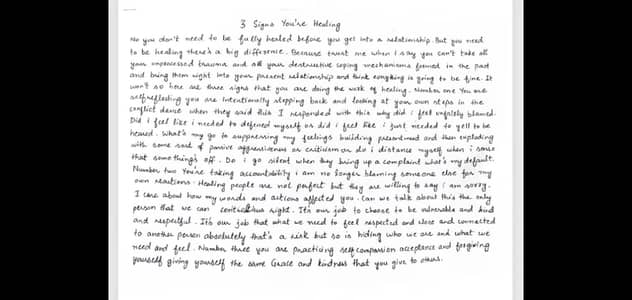 3 Signs You're Healing
No you don't need to be fully healed before you get into a relationship. But you need
to be healing there's a big difference. Because trust me when I say you can't take all
your unprocessed trauma and all your destructive coping mechanisms formed in the past
and bring them right into your present relationship and think everything is going to be fine. It
won't so here are three signs that you are doing the work of healing. Number one You are
self reflecting you are intentionally stepping back and looking at your own steps in the
conflict dance when they said this I responded with this why did i feel unfairly blamed.
Did i feel like i need to defened myself or did i feel like i just needed to yell to be
heared. What's my go to suppressing my feelings building resentment and then exploding
with some sort of passive aggressiveness or criticism or do i distance myself when i sense
that somethings off. Do i go silent when they bring up a complaint what's my default.
Number two You're taking accountability i am no longer blaming someone else for my
own reactions. Healing people are not perfect but they are willing to say i am sorry.
I care about how my words and actions affected you. Can we talk about this the only
person that we can right. It's our job to choose to be vulnerable and kind
and respectful. It's our job that what we need to feel respected and close and connected
to another person absolutely that's a risk but so is hiding who we are and what we
need and feel. Number three you are practicing self compassion acceptance and forgiving
yourself giving yourself the same Grace and kindness that you give to others.